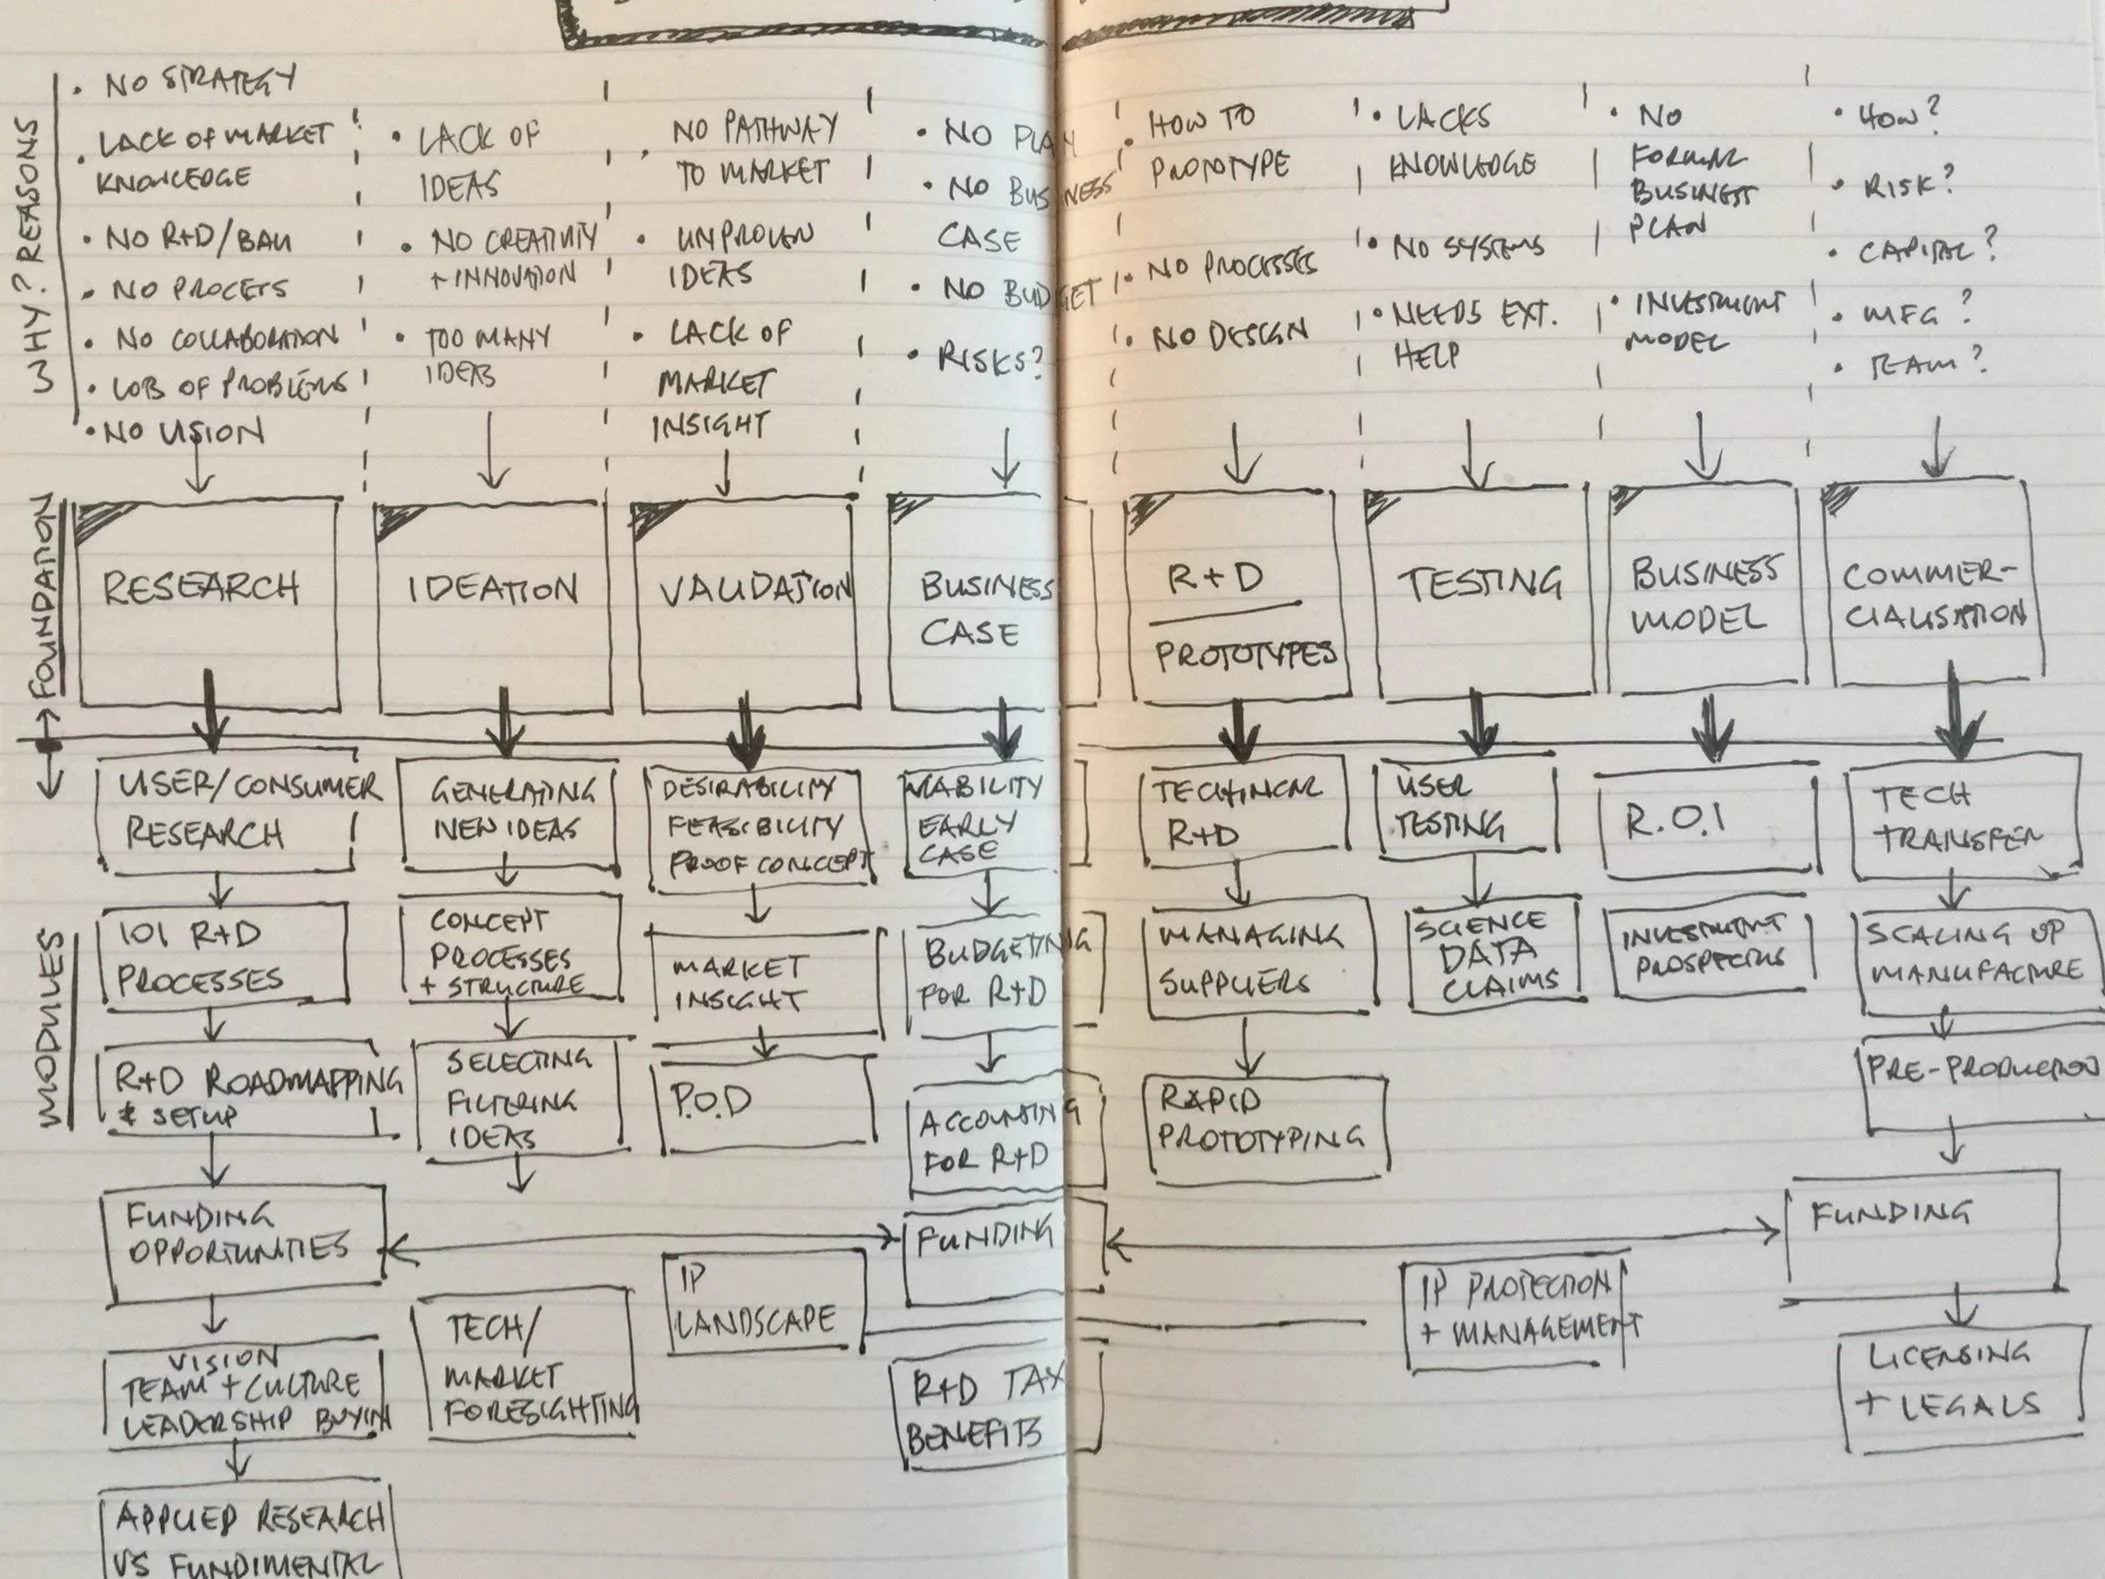 WHY? REASONS
• NO STRATEGY
• LACK OF MARKET
KNOWLEDGE
• NO R+D/BAU
• NO PROCESS
• NO COLLABORATION
• LOB OF PROBLEMS
• NO VISION
• LACK OF
IDEAS
• NO CREATIVITY
+ INNOVATION
• TOO MANY
IDEAS
• NO PATHWAY
TO MARKET
• UNPROVEN
IDEAS
• LACK OF
MARKET
INSIGHT
• NO PLAN
• NO BUSINESS
CASE
• NO BUDGET
• RISKS?
• HOW TO
PROTOTYPE
• NO PROCESSES
• NO DESIGN
• LACKS
KNOWLEDGE
• NO SYSTEMS
• NEEDS EXT.
HELP
• NO
FORMAL
BUSINESS
PLAN
• INVESTMENT
MODEL
• HOW?
• RISK?
• CAPITAL?
• MFG?
• TEAM?
FOUNDATION
RESEARCH
IDEATION
VALIDATION
BUSINESS
CASE
R+D
PROTOTYPES
TESTING
BUSINESS
MODEL
COMMER-
CIALISATION
MODULES
USER/CONSUMER
RESEARCH
101 R+D
PROCESSES
R+D ROADMAPPING
& SETUP
FUNDING
OPPORTUNITIES
VISION
TEAM + CULTURE
LEADERSHIP BUYIN
APPLIED RESEARCH
VS FUNDIMENTAL
GENERATING
NEW IDEAS
CONCEPT
PROCESSES
+ STRUCTURE
SELECTING
FILTERING
IDEAS
TECH/
MARKET
FORESIGHTING
DESIRABILITY
FEASIBILITY
PROOF CONCEPT
MARKET
INSIGHT
P.O.D
IP
LANDSCAPE
VIABILITY
EARLY
CASE
BUDGETING
FOR R+D
ACCOUNTING
FOR R+D
FUNDING
R+D TAX
BENEFITS
TECHNICAL
R+D
MANAGING
SUPPLIERS
RAPID
PROTOTYPING
USER
TESTING
SCIENCE
DATA
CLAIMS
IP PROTECTION
+ MANAGEMENT
R.O.I
INVESTMENT
PROSPECTUS
TECH
TRANSFER
SCALING UP
MANUFACTURE
PRE-PRODUCTION
FUNDING
LICENSING
+ LEGALS